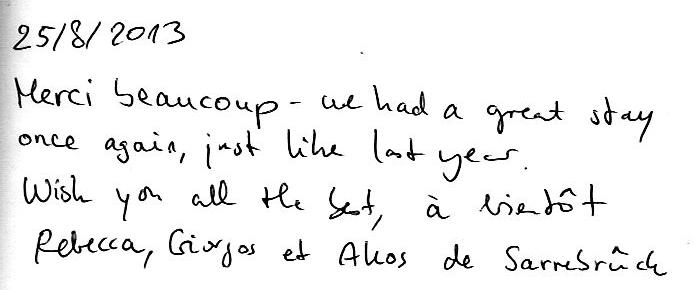 25/8/2013
Merci beaucoup - we had a great stay
once again, just like last year.
Wish you all the best, à bientôt
Rebecca, Giorgos et Akos de Sarrebrück